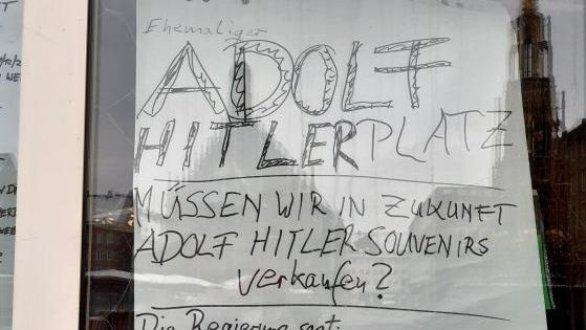 Ehemaliger
ADOLF
HITLERPLATZ
MÜSSEN WIR IN ZUKUNFT
ADOLF HITLER SOUVENIRS
verkaufen?
Die Regierung sagt: